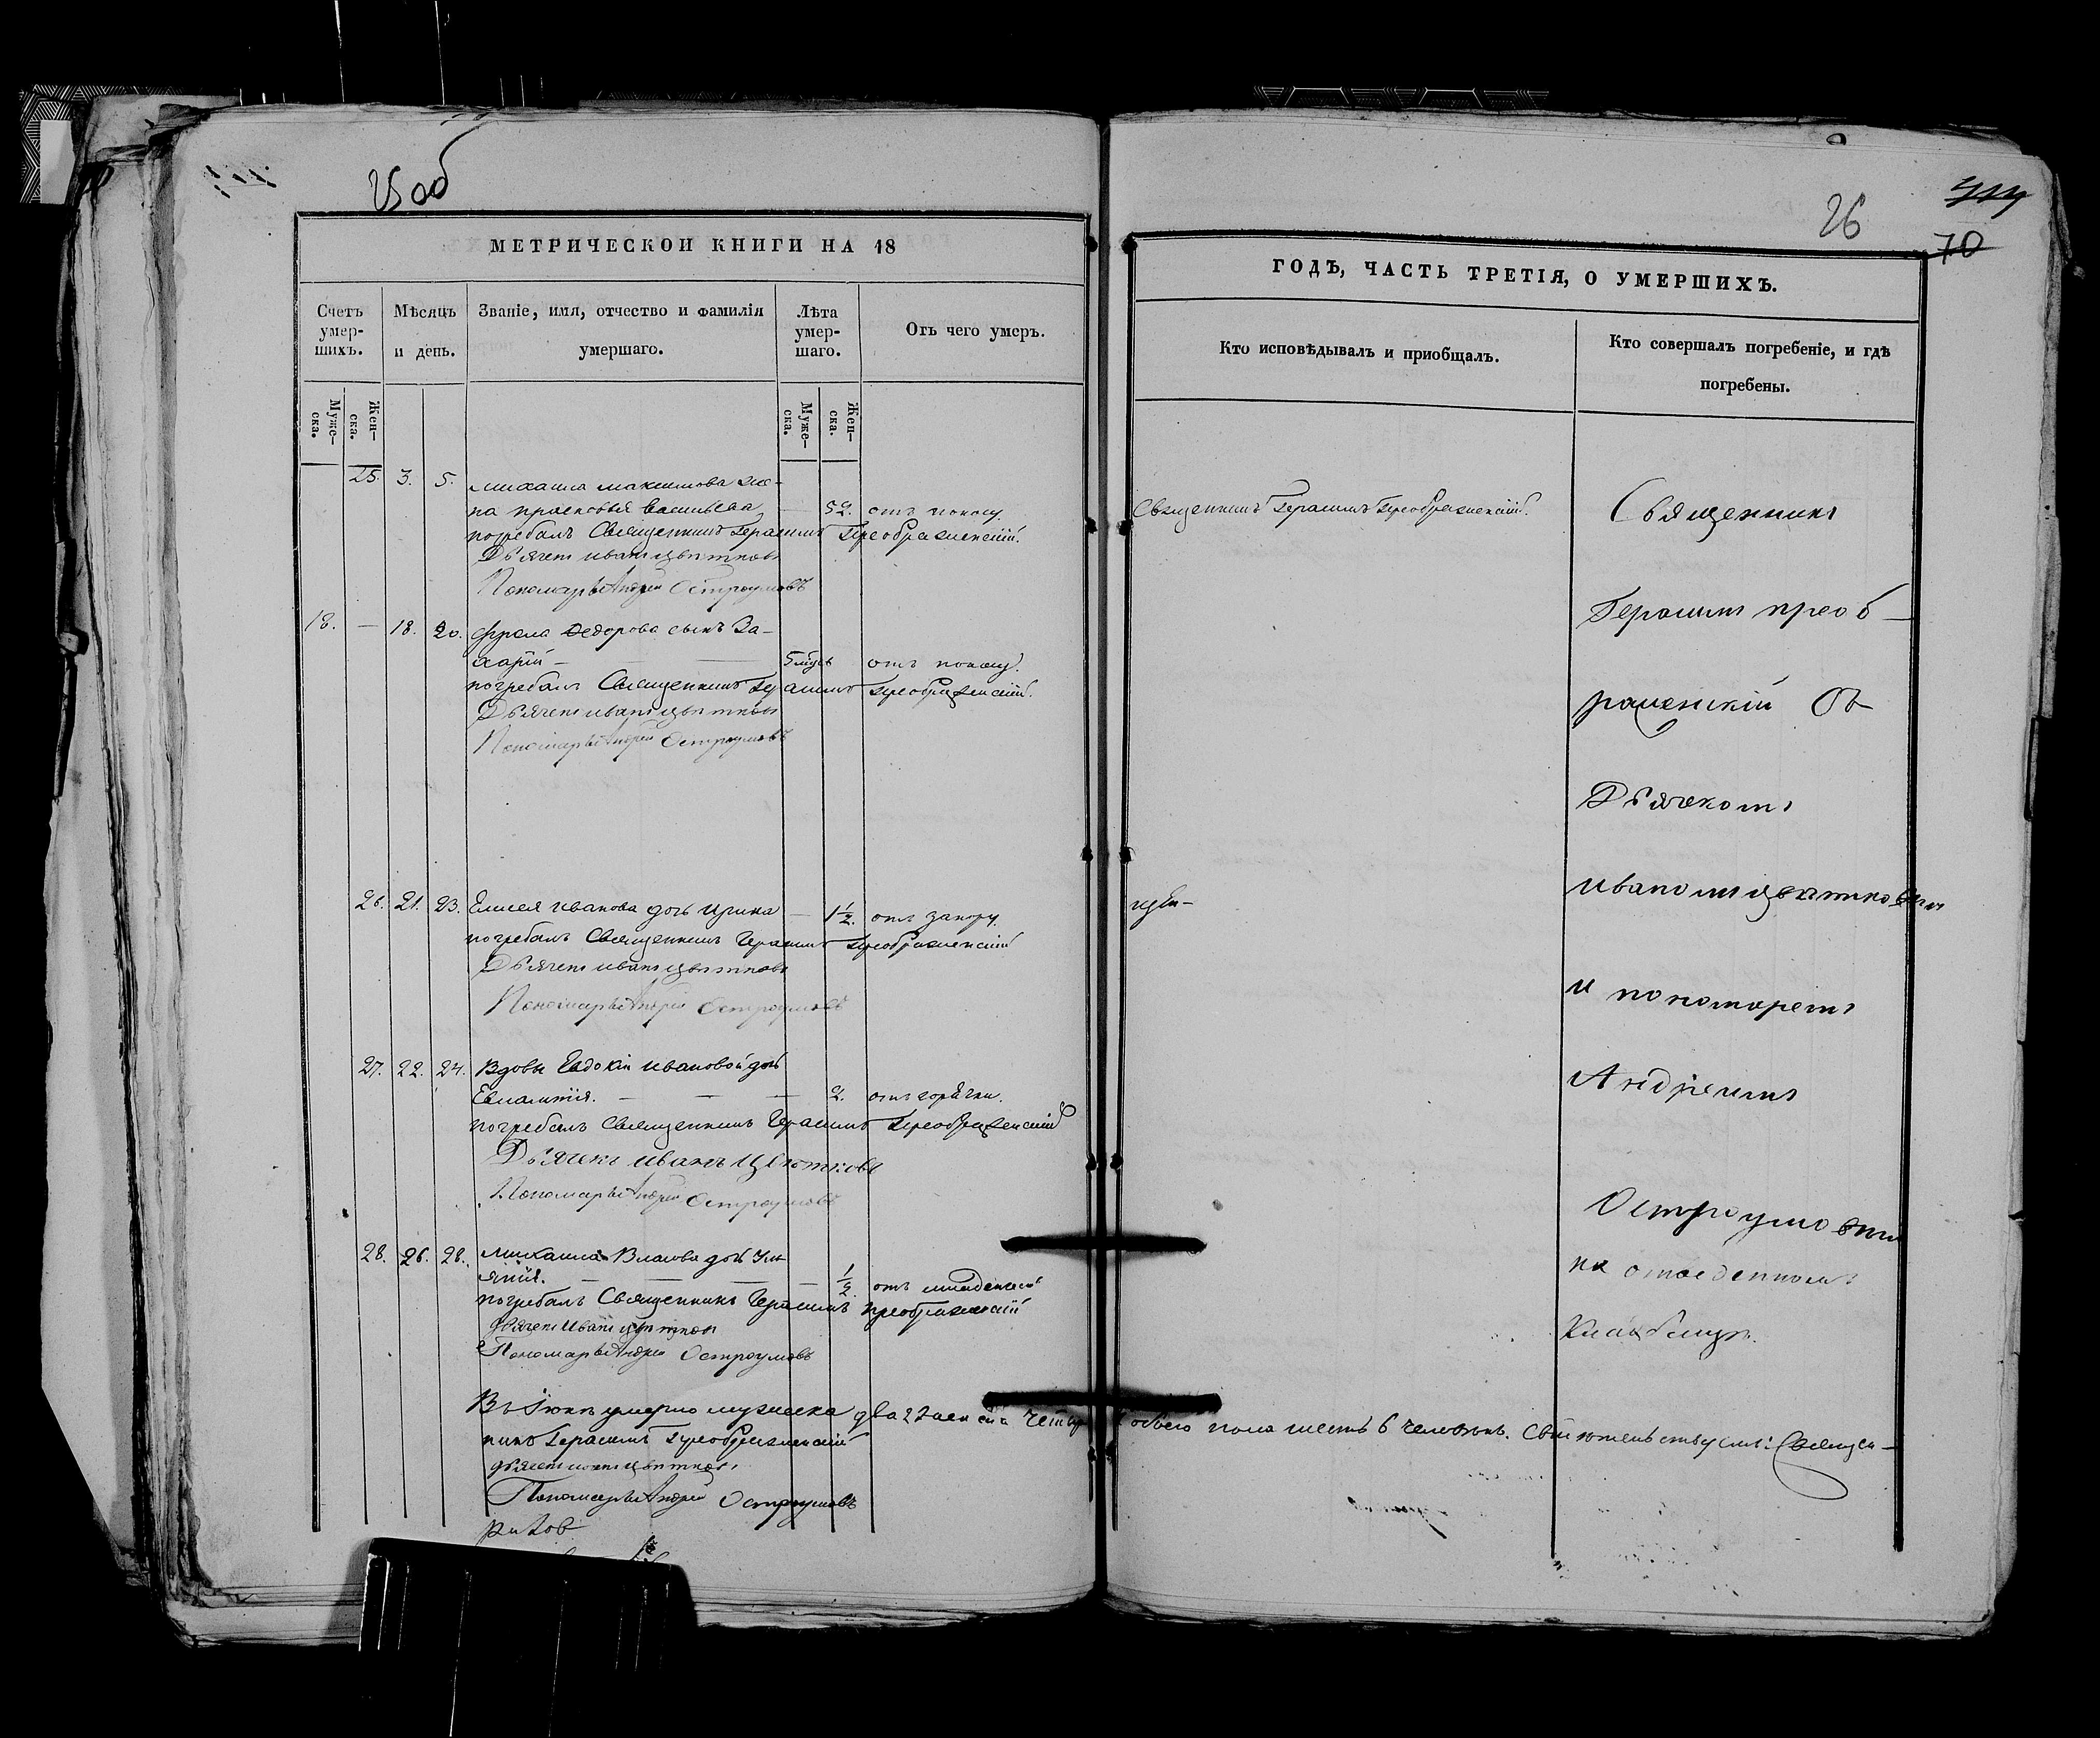 25 об
МЕТРИЧЕСКОЙ КНИГИ НА 18
Счетъ умер-шихъ.
Мѣсяцъ и день.
Званіе, имя, отчество и фамилія умершаго.
Лѣта умер-шаго.
Отъ чего умеръ.
Муже-ска.
Жен-ска.
Муже-ска.
Жен-ска.
25. 3. 5. Михаила Максимова же-
на Прасковья Васильева — 52. отъ поносу
погребалъ Священникъ Герасимъ Преображенскій.
Дьячекъ Иванъ Цвѣтковъ
Пономарь Андрей Остроумовъ
18. — 18. 20. Фрола Федорова сынъ За-
харій — отъ поносу.
погребалъ Священникъ Герасимъ Преображенскій.
Дьячекъ Иванъ Цвѣтковъ
Пономарь Андрей Остроумовъ
26. 21. 23. Елисея Иванова дочь Ирина — 1½. отъ запору.
погребалъ Священникъ Герасимъ Преображенскій
Дьячекъ Иванъ Цвѣтковъ
Пономарь Андрей Остроумовъ
27. 22. 24. Вдовы Евдокіи Ивановой дочь
Евлампія. — 2. отъ горячки.
погребалъ Священникъ Герасимъ Преображенскій
Дьячекъ Иванъ Цвѣтковъ
Пономарь Андрей Остроумовъ
28. 26. 28. Михаила Власова дочь Ул-
янія. — ½ отъ младенской
погребалъ Священникъ Герасимъ Преображенскій
Дьячекъ Иванъ Цвѣтковъ
Пономарь Андрей Остроумовъ
Въ Іюнѣ умерло мужеска два 2 женска четыре обоего пола шесть 6 человѣкъ. Свидѣтельствуемъ: Священ-
никъ Герасимъ Преображенскій
дьячекъ Иванъ Цвѣтковъ
Пономарь Андрей Остроумовъ
26
70
ГОДЪ, ЧАСТЬ ТРЕТІЯ, О УМЕРШИХЪ.
Кто исповѣдывалъ и пріобщалъ.
Кто совершалъ погребеніе, и гдѣ погребены.
Священникъ Герасимъ Преображенскій.
Священникъ
Герасимъ Преоб-
раженскій Съ
Дьячкомъ
Иваномъ Цвѣтковымъ
и пономаремъ
Андреемъ
Остроумовымъ
на отведенномъ
Кладбищѣ.